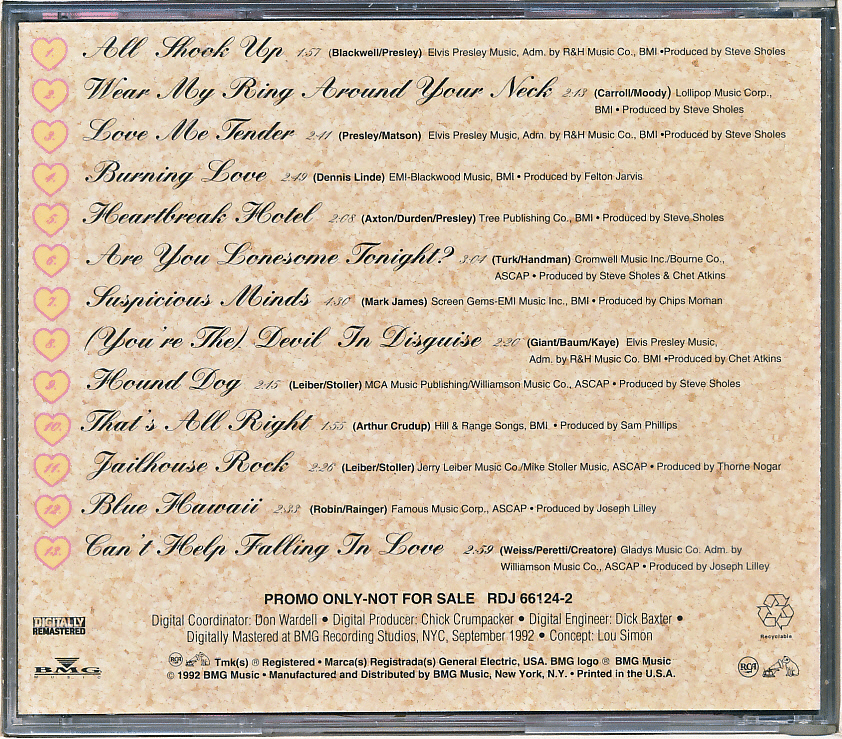 1. All Shook Up 1:57 (Blackwell/Presley) Elvis Presley Music, Adm. by R&H Music Co., BMI •Produced by Steve Sholes
2. Wear My Ring Around Your Neck 2:13 (Carroll/Moody) Lollipop Music Corp.,
BMI • Produced by Steve Sholes
3. Love Me Tender 2:41 (Presley/Matson) Elvis Presley Music, Adm. by R&H Music Co., BMI •Produced by Steve Sholes
4. Burning Love 2:49 (Dennis Linde) EMI-Blackwood Music, BMI • Produced by Felton Jarvis
5. Heartbreak Hotel 2:08 (Axton/Durden/Presley) Tree Publishing Co., BMI • Produced by Steve Sholes
6. Are You Lonesome Tonight? 3:04 (Turk/Handman) Cromwell Music Inc./Bourne Co.,
ASCAP • Produced by Steve Sholes & Chet Atkins
7. Suspicious Minds 4:30 (Mark James) Screen Gems-EMI Music Inc., BMI • Produced by Chips Moman
8. (You're The) Devil In Disguise 2:20 (Giant/Baum/Kaye) Elvis Presley Music,
Adm. by R&H Music Co. BMI •Produced by Chet Atkins
9. Hound Dog 2:15 (Leiber/Stoller) MCA Music Publishing/Williamson Music Co., ASCAP • Produced by Steve Sholes
10. That's All Right 1:55 (Arthur Crudup) Hill & Range Songs, BMI • Produced by Sam Phillips
11. Jailhouse Rock 2:26 (Leiber/Stoller) Jerry Leiber Music Co./Mike Stoller Music, ASCAP • Produced by Thorne Nogar
12. Blue Hawaii 2:33 (Robin/Rainger) Famous Music Corp., ASCAP • Produced by Joseph Lilley
13. Can't Help Falling In Love 2:59 (Weiss/Peretti/Creatore) Gladys Music Co. Adm. by
Williamson Music Co., ASCAP • Produced by Joseph Lilley
PROMO ONLY-NOT FOR SALE RDJ 66124-2
Digital Coordinator: Don Wardell • Digital Producer: Chick Crumpacker • Digital Engineer: Dick Baxter •
Digitally Mastered at BMG Recording Studios, NYC, September 1992 • Concept: Lou Simon
DIGITALLY
REMASTERED
Recyclable
BMG
MUSIC
RCA Tmk(s) ® Registered • Marca(s) Registrada(s) General Electric, USA. BMG logo ® BMG Music
© 1992 BMG Music • Manufactured and Distributed by BMG Music, New York, N.Y. • Printed in the U.S.A.
RCA